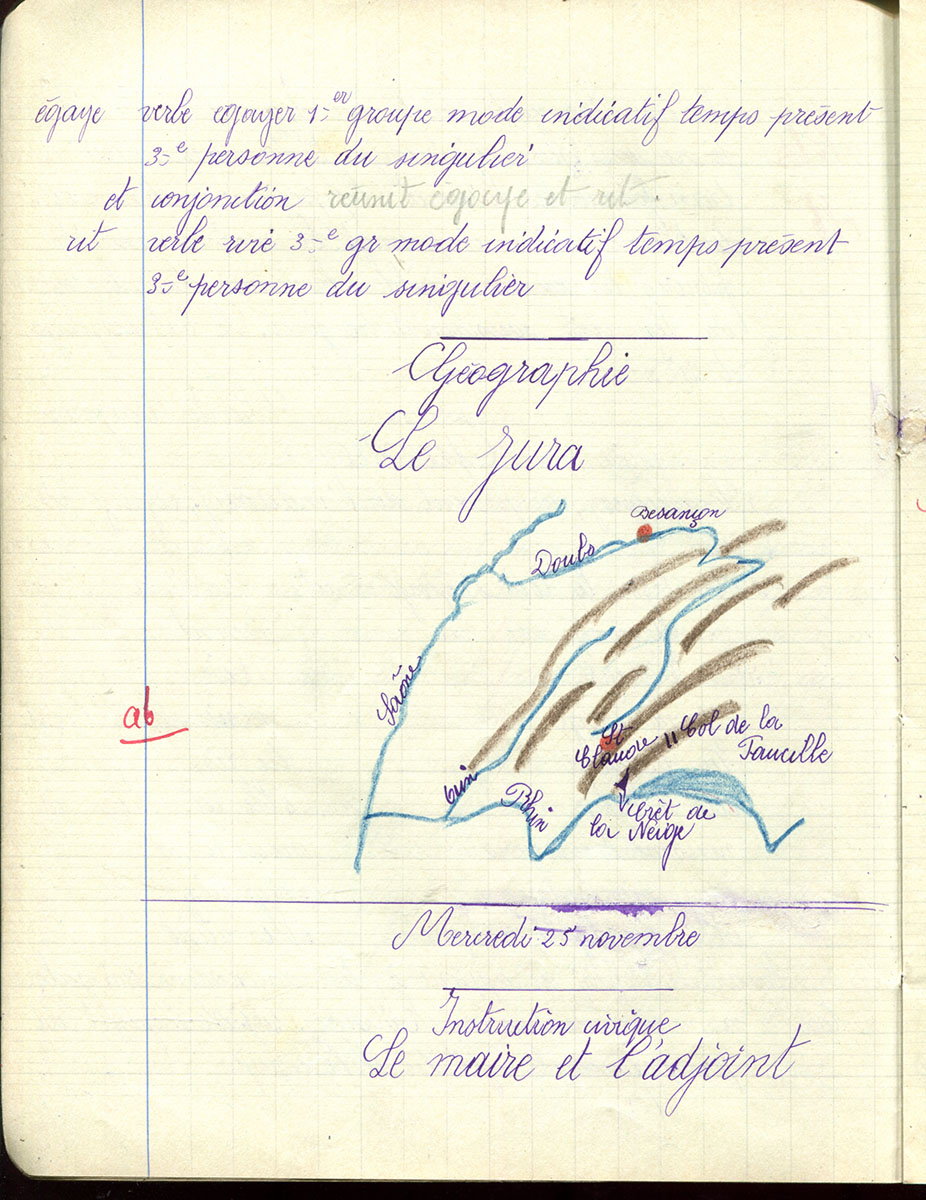 égaye verbe egayer 1-er groupe mode indicatif temps présent
3-e personne du singulier
et conjonction réunit égaye et rit.
rit verbe rire 3-e gr mode indicatif temps présent
3-e personne du singulier
Géographie
Le Jura
Besançon
Doubs
Saône
ab
St
Claude
Col de la
Faucille
Ain
Rhin
Crêt de
la Neige
Mercredi 25 novembre
Instruction civique
Le maire et l'adjoint